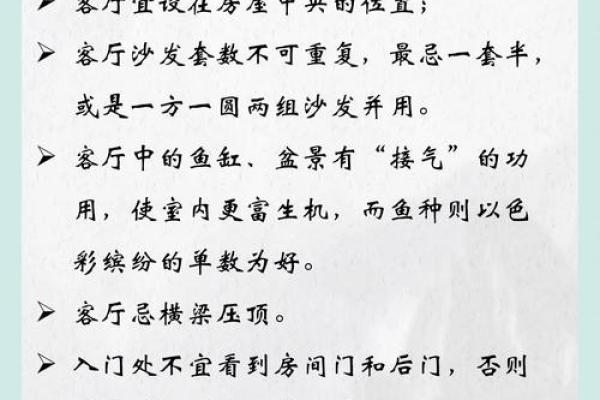 ➢ 客厅宜设在房屋中央的位置；
➢ 客厅沙发套数不可重复，最忌一套半，
或是一方一圆两组沙发并用。
➢ 客厅中的鱼缸、盆景有“接气”的功
用，使室内更富生机，而鱼种则以色
彩缤纷的单数为好。
➢ 客厅忌横梁压顶。
➢ 入门处不宜看到房间门和后门，否则